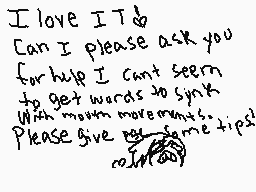 I love IT
Can I please ask you
for help I cant seem
to get words to synk
with mouth movements.
Please give some tips!